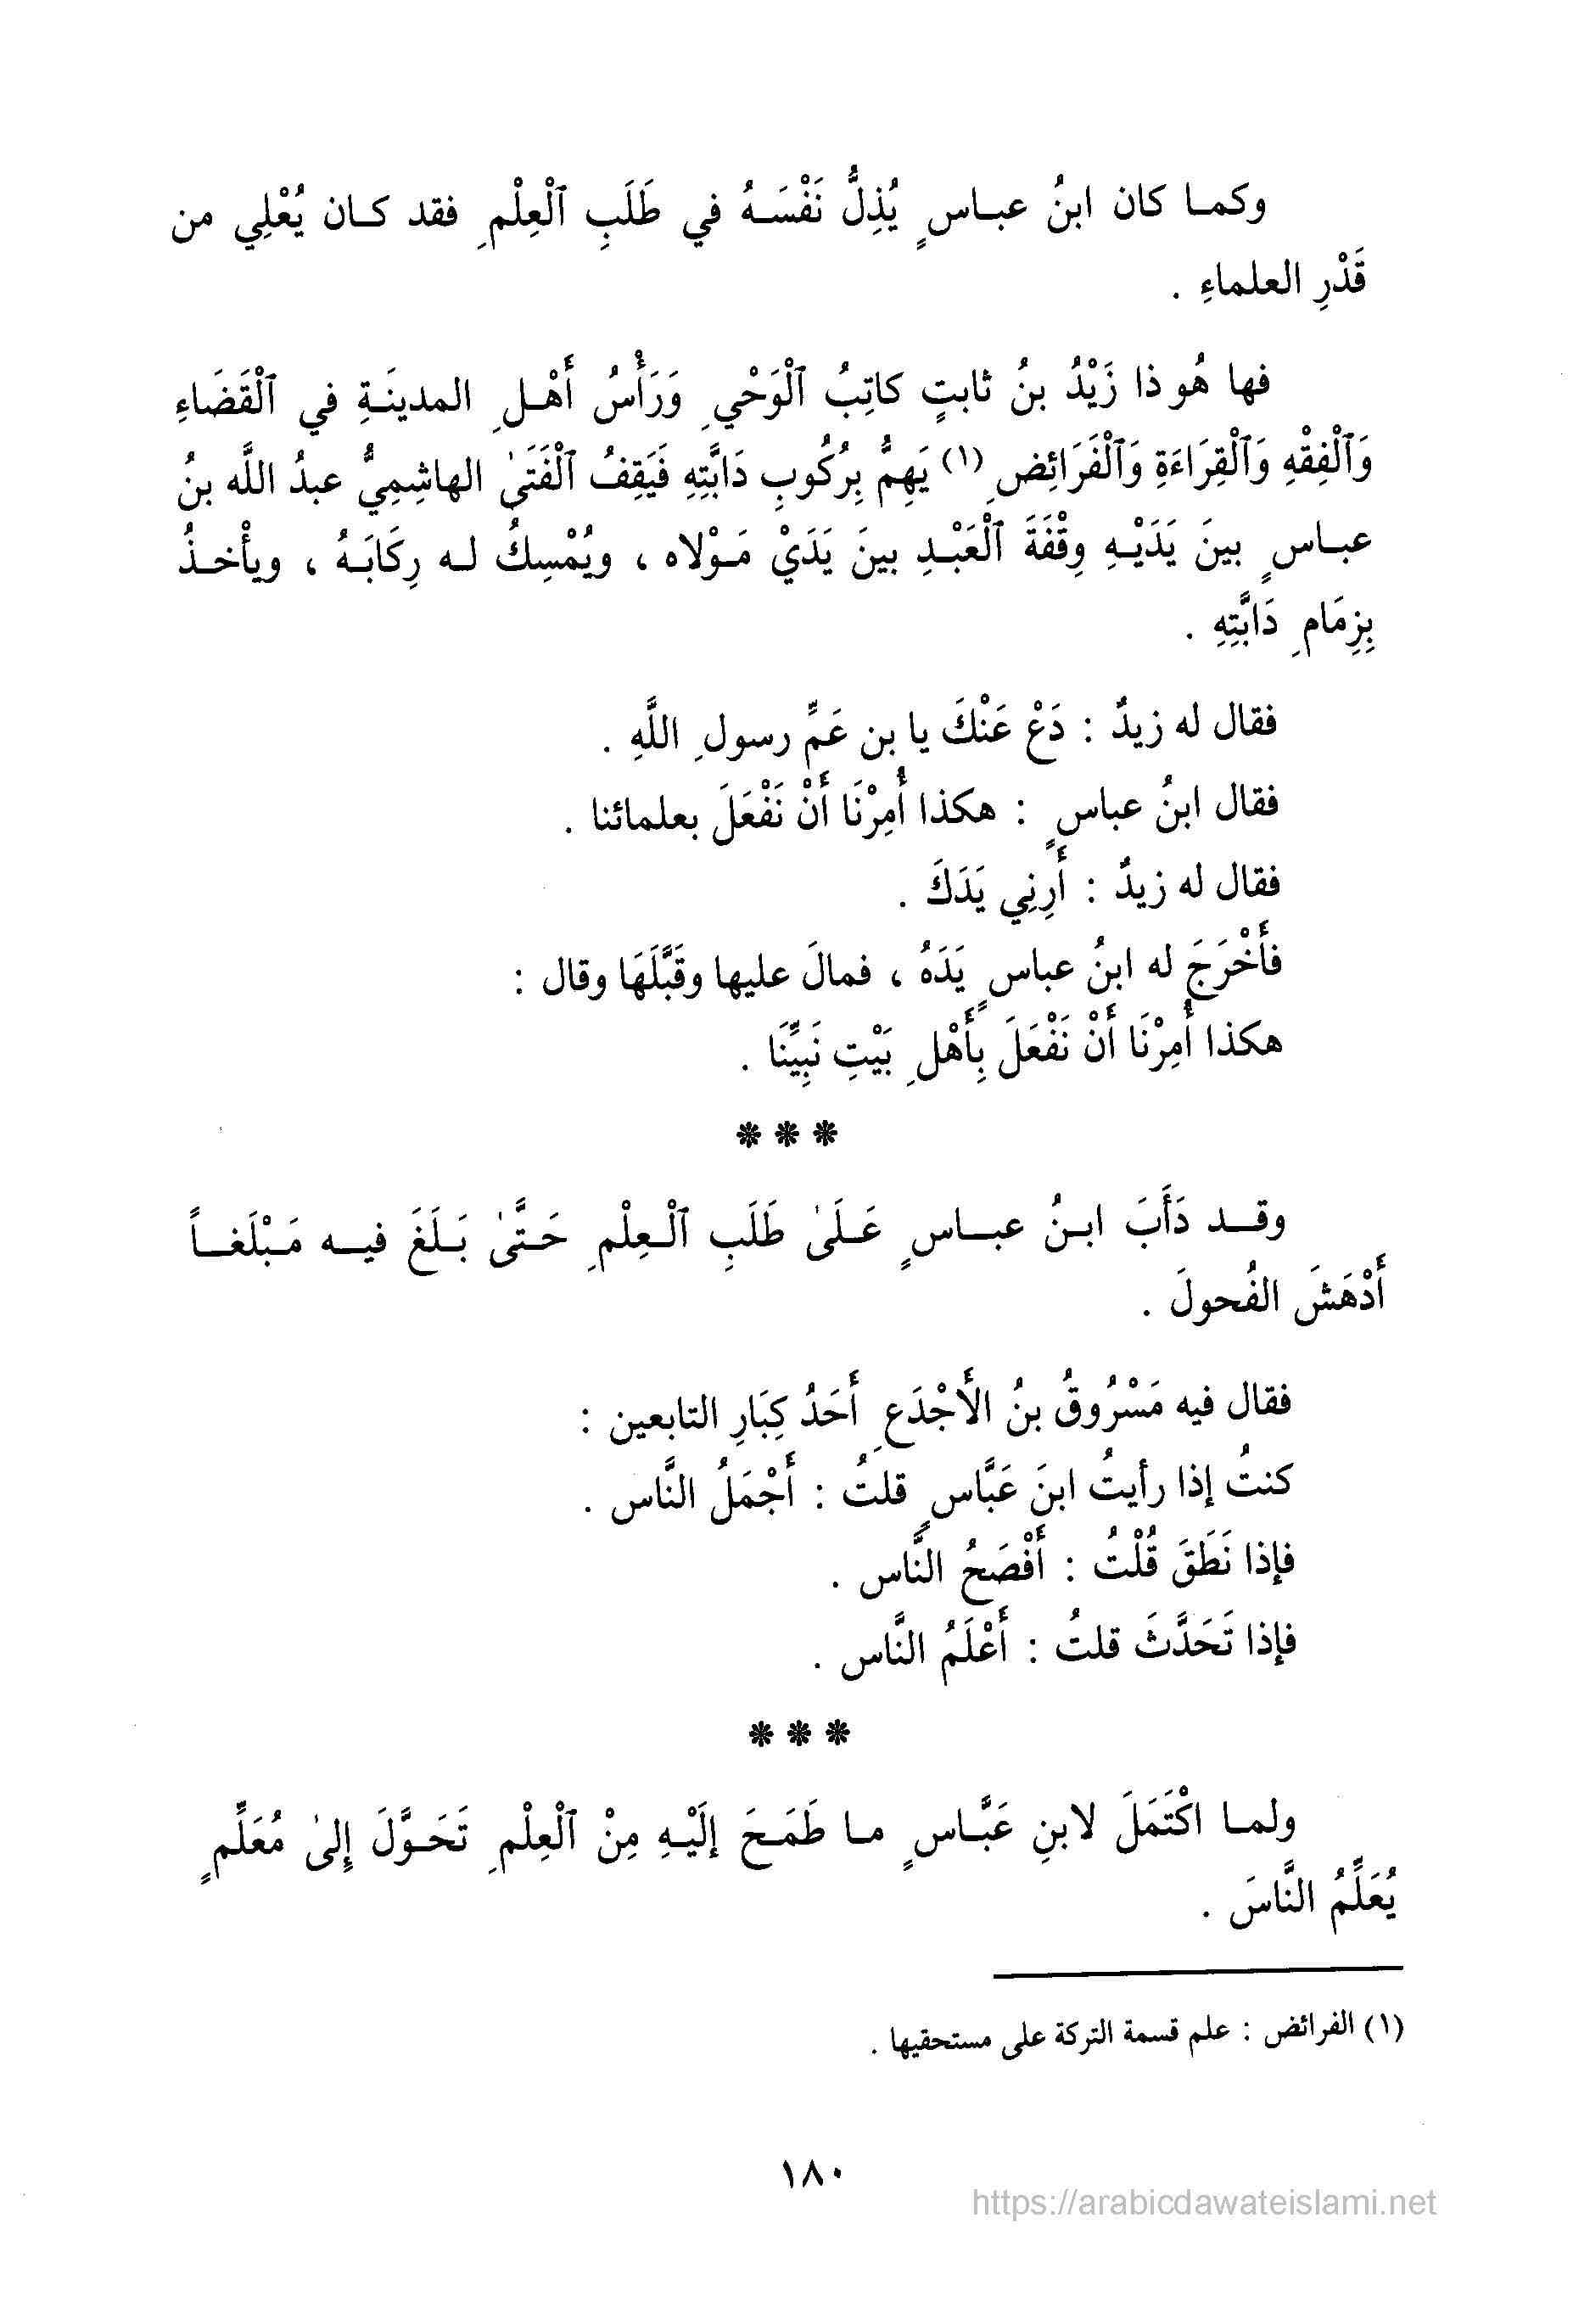 وكمـا كان ابنُ عبـاسٍ يُذِلُّ نَفْسَـهُ في طَلَبِ ٱلْعِلْمِ فقد كـان يُعْلِي من
قَدْرِ العلماءِ .
فها هُو ذا زَيْدُ بنُ ثابتٍ كاتِبُ ٱلْوَحْيِ وَرَأْسُ أَهْـلِ المدينَـةِ في ٱلْقَضَاءِ
وَٱلْفِقْهِ وَٱلْقِرَاءَةِ وَٱلْفَرَائِضِ (١) يَهِمُّ بِرُكُوبِ دَابَّتِهِ فَيَقِفُ ٱلْفَتَىٰ الهاشِمِيُّ عبدُ اللَّه بنُ
عبـاسٍ بينَ يَدَيْـهِ وِقْفَةَ ٱلْعَبْـدِ بينَ يَدَيْ مَـوْلاه ، ويُمْسِكُ لـه رِكَابَـهُ ، ويأْخـذُ
بِزِمَامِ دَابَّتِهِ .
فقال له زيدٌ : دَعْ عَنْكَ يا بن عَمِّ رسولِ اللَّهِ .
فقال ابنُ عباسٍ : هكذا أُمِرْنَا أَنْ نَفْعَلَ بعلمائنا .
فقال له زيدٌ : أَرِنِي يَدَكَ .
فأَخْرَجَ له ابنُ عباسٍ يَدَهُ ، فمالَ عليها وقَبَّلَهَا وقال :
هكذا أُمِرْنَا أَنْ نَفْعَلَ بِأَهْلِ بَيْتِ نَبِيِّنَا .
* * *
وقـد دَأَبَ ابـنُ عبـاسٍ عَـلَىٰ طَلَبِ ٱلْـعِلْمِ حَـتَّىٰ بَـلَغَ فيـه مَـبْلَغـاً
أَدْهَشَ الفُحولَ .
فقال فيه مَسْرُوقُ بنُ الأَجْدَعِ أَحَدُ كِبَارِ التابعين :
كنتُ إذا رأيتُ ابنَ عَبَّاسٍ قلتُ : أَجْمَلُ النَّاس .
فإذا نَطَقَ قُلْتُ : أَفْصَحُ النَّاس .
فإذا تَحَدَّثَ قلتُ : أَعْلَمُ النَّاس .
* * *
ولمـا اكْتَمَلَ لابنِ عَبَّـاسٍ مـا طَمَـحَ إلَيْـهِ مِنْ ٱلْعِلْمِ تَحَـوَّلَ إِلىٰ مُعَلِّمٍ
يُعَلِّمُ النَّاسَ .
(١) الفرائض : علم قسمة التركة على مستحقيها .
١٨٠
https://arabicdawateislami.net